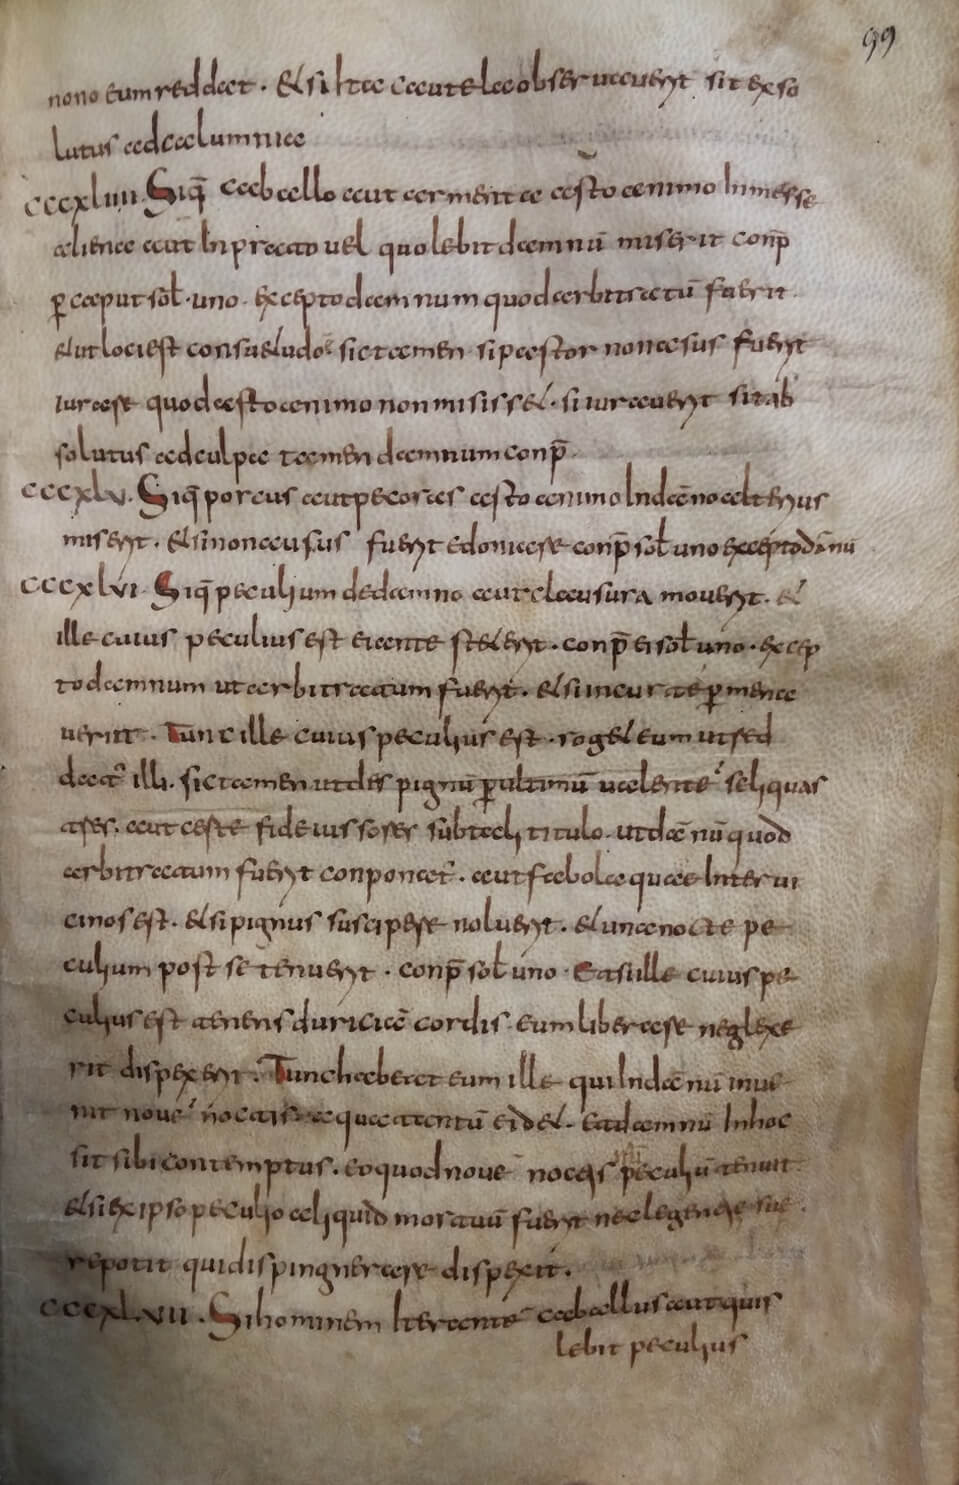 99
nono eum reddat. et si ita cautela observaverit sit exso
lutus ad calumnia
cccxliiii. Siq̄ caballo aut armenta asto animo In messe
aliena aut In prato vel quolebit damnū miserit conp̄
ꝑ caput sol. uno. excepto damnum quod arbitratū fuerit.
et ut loci est consuetudo sic tamen si pastor non ausus fuerit
iurare quod asto animo non misisset. si iuraverit sit ab
solutus ad culpa tamen damnum conp̄.
cccxlv. Siq̄ porcus aut pecoras asto animo In dānō alterius
miserit. et si non ausus fuerit edoniare conp̄ sol. uno excepto dānū
cccxlvi. Siq̄ peculium de damno aut clausura moverit. et
ille cuius peculius est eicente steterit. conp̄ ei sol. uno. excep
to damnum ut arbitratum fuerit. et si in curte ꝑmena
verit. Tunc ille cuius peculius est. roget eum ut red
dat illi. sic tamen ut det pignū ꝑ ultimū valente seliquas
tres. aut certe fideiussorer sub tali titulo. ut dānū quod
arbitratum fuerit conponat. aut fabola quae Inter vi
cinos est. et si pignus suscipere noluerit. et una nocte pe
culium post se tenuerit. conp̄ sol. uno. Ea si ille cuius pe
culius est atenens duriciā cordis. eum liberare neglexe
rit dispexerit. Tunc habeat eum ille qui In dānū inve
nit nove noctis. aquā tantū ei det. Ea damnū In hoc
sit sibi contemptus. eo quod nove noctis peculiū tenuit.
et si ex ipso peculio aliquid mortuū fuerit neclegencie sue.
repotit qui dispingnerare dispexit.
cccxlvii. Si hominem Iterante caballus aut quis
lebit peculius